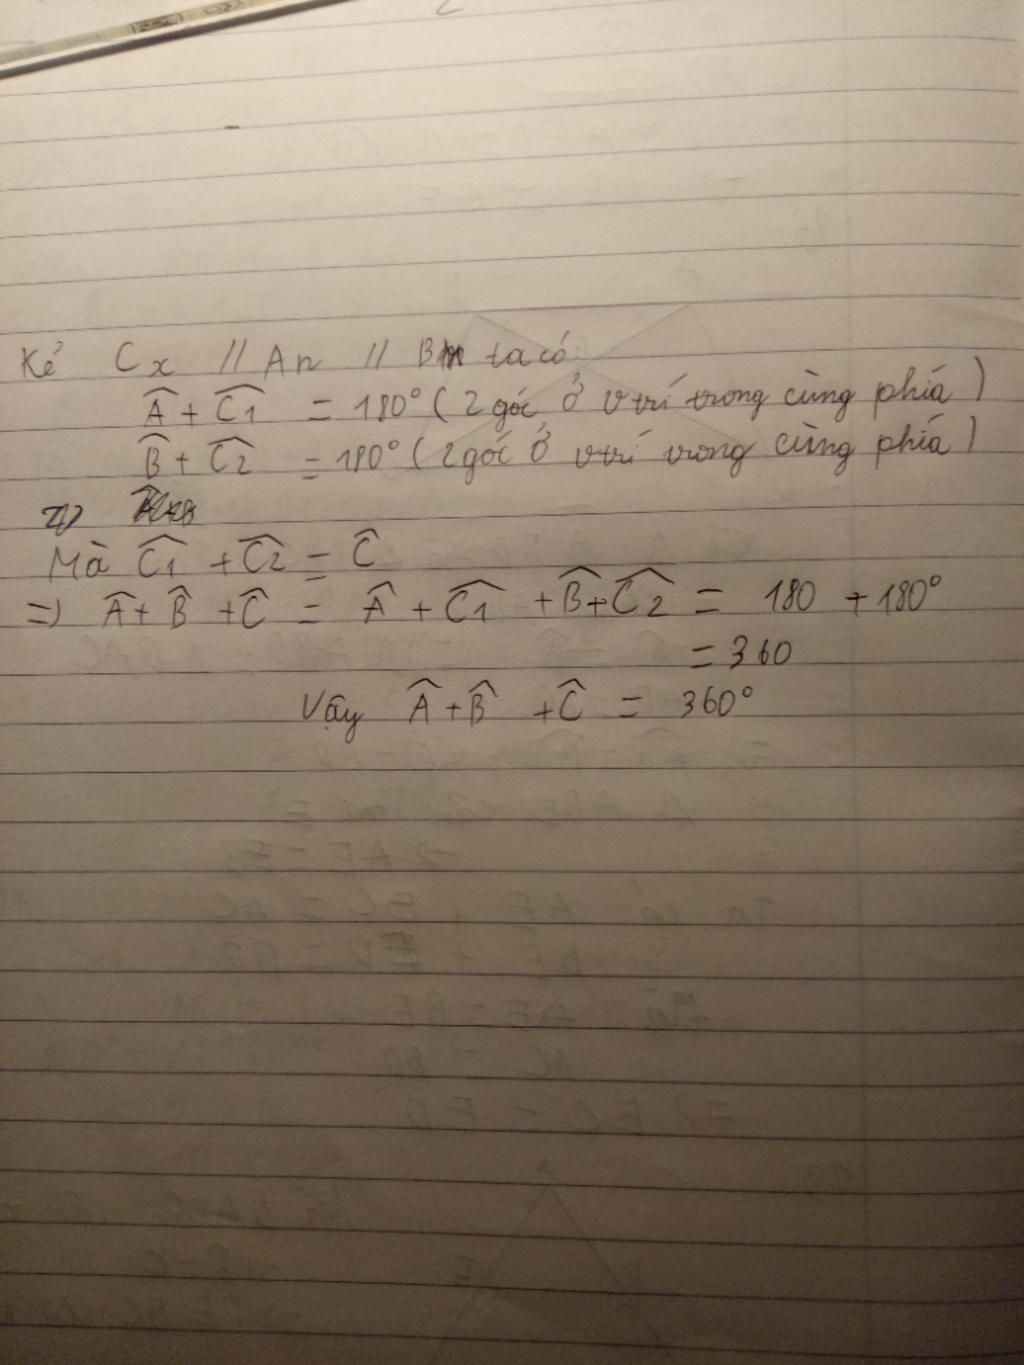 Kẻ Cx // An // Bm ta có:
Â + Ĉ1 = 180° ( 2 góc ở vtrí trong cùng phía )
B̂ + Ĉ2 = 180° ( 2 góc ở vtrí trong cùng phía )
=>
Mà Ĉ1 + Ĉ2 = Ĉ
=> Â + B̂ + Ĉ = Â + Ĉ1 + B̂ + Ĉ2 = 180 + 180°
= 360
Vậy Â + B̂ + Ĉ = 360°